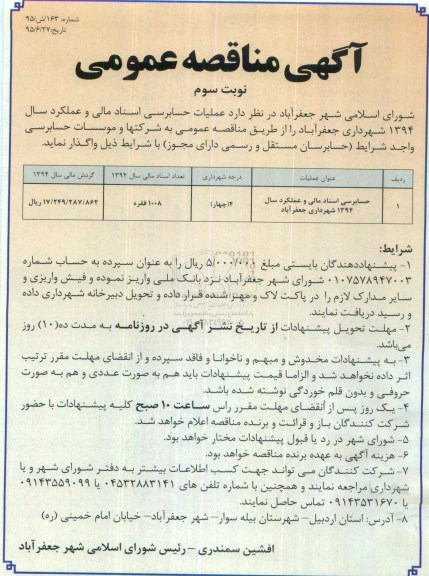 شماره: ۱۶۳/ش/۹۵
تاریخ: ۹۵/۶/۲۷
آگهی مناقصه عمومی
نوبت سوم
شورای اسلامی شهر جعفرآباد در نظر دارد عملیات حسابرسی اسناد مالی و عملکرد سال
۱۳۹۴ شهرداری جعفرآباد را از طریق مناقصه عمومی به شرکتها و موسسات حسابرسی
واجد شرایط (حسابرسان مستقل و رسمی دارای مجوز) با شرایط ذیل واگذار نماید.
ردیف عنوان عملیات درجه شهرداری تعداد اسناد مالی سال ۱۳۹۴ گردش مالی سال ۱۳۹۴
۱ حسابرسی اسناد مالی و عملکرد سال ۴(چهار) ۱۰۰۸ فقره ۱۷/۲۴۹/۲۸۷/۸۶۲ ریال
۱۳۹۴ شهرداری جعفرآباد
شرایط:
۱- پیشنهاددهندگان بایستی مبلغ ۵/۰۰۰/۰۰۰ ریال را به عنوان سپرده به حساب شماره
۰۱۰۷۵۷۸۹۴۷۰۰۳ شورای شهر جعفرآباد نزد بانک ملی واریز نموده و فیش واریزی و
سایر مدارک لازم را در پاکت لاک و مهر شده قرار داده و تحویل دبیرخانه شهرداری داده
و رسید دریافت نمایند.
۲- مهلت تحویل پیشنهادات از تاریخ نشر آگهی در روزنامه به مدت ده(۱۰) روز
می‌باشد.
۳- به پیشنهادات مخدوش و مبهم و ناخوانا و فاقد سپرده و از انقضای مهلت مقرر ترتیب
اثر داده نخواهد شد و الزاما قیمت پیشنهادات باید هم به صورت عددی و هم به صورت
حروفی و بدون قلم خوردگی نوشته شده باشد.
۴- یک روز پس از انقضای مهلت مقرر راس ساعت ۱۰ صبح کلیه پیشنهادات با حضور
شرکت کنندگان باز و قرائت و برنده مناقصه اعلام خواهد شد.
۵- شورای شهر در رد یا قبول پیشنهادات مختار خواهد بود.
۶- هزینه آگهی به عهده برنده مناقصه خواهد بود.
۷- شرکت کنندگان می تواند جهت کسب اطلاعات بیشتر به دفتر شورای شهر و یا
شهرداری مراجعه نمایند و همچنین با شماره تلفن های ۰۴۵۳۲۸۸۳۱۴۱ یا ۰۹۱۴۳۵۵۹۰۹۹
یا ۰۹۱۴۳۵۳۱۶۷۰ تماس حاصل نمایند.
۸- آدرس: استان اردبیل- شهرستان بیله سوار- شهر جعفرآباد- خیابان امام خمینی (ره)
افشین سمندری - رئیس شورای اسلامی شهر جعفرآباد